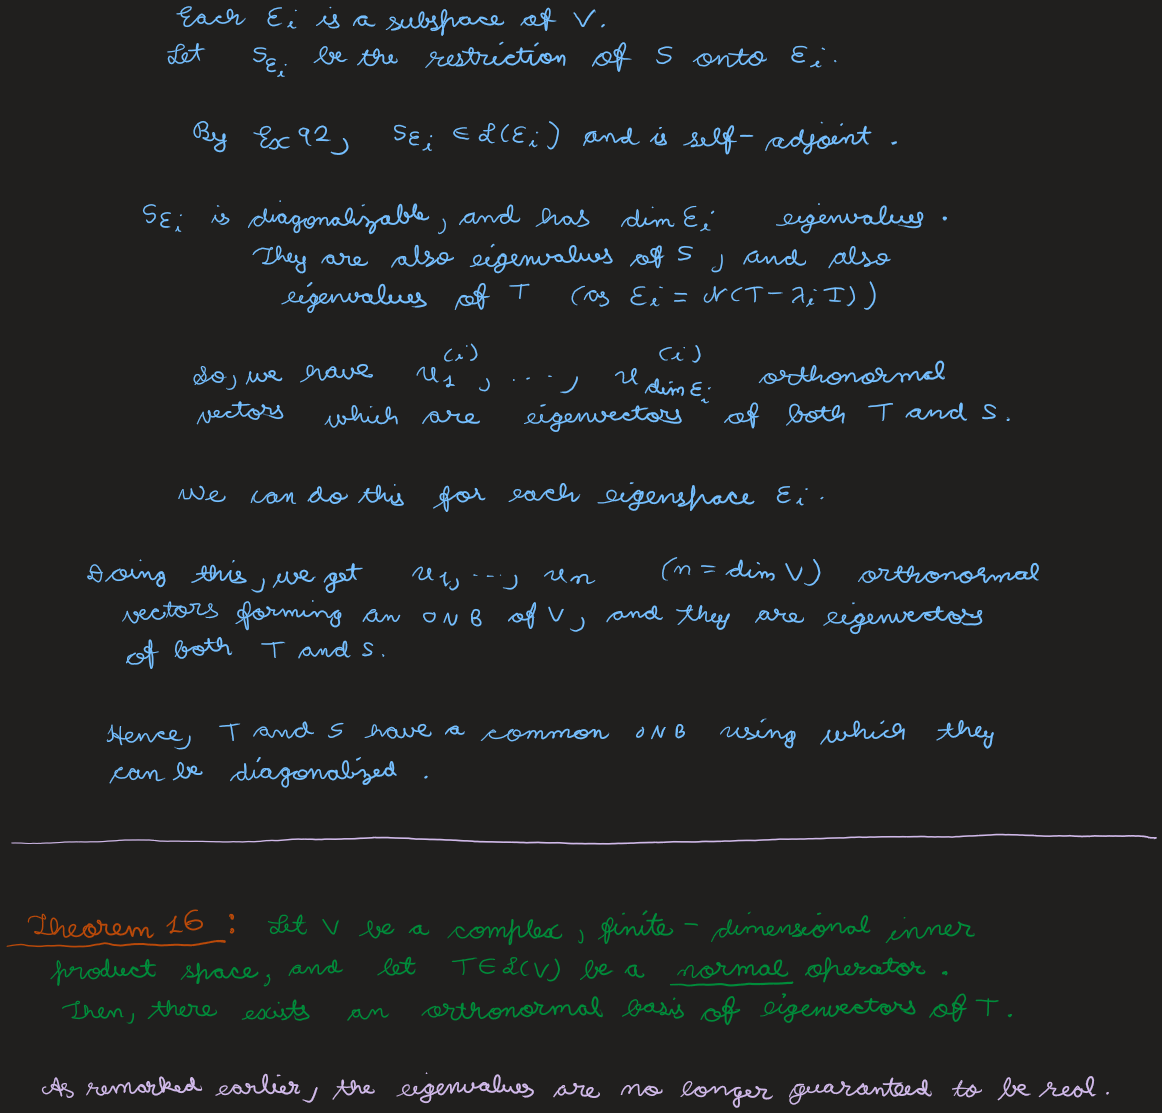 Each Ɛᵢ is a subspace of V.
Let S_Ɛᵢ be the restriction of S onto Ɛᵢ.
By Ex 92, S_Ɛᵢ ∈ ℒ(Ɛᵢ) and is self-adjoint.
S_Ɛᵢ is diagonalizable, and has dim Ɛᵢ eigenvalues.
They are also eigenvalues of S, and also
eigenvalues of T (as Ɛᵢ = 𝒩(T - λᵢ I))
So, we have u₁⁽ⁱ⁾, ..., u_{dim Ɛᵢ}⁽ⁱ⁾ orthonormal
vectors which are eigenvectors of both T and S.
We can do this for each eigenspace Ɛᵢ.
Doing this, we get u₁, ..., uₙ (n = dim V) orthonormal
vectors forming an ONB of V, and they are eigenvectors
of both T and S.
Hence, T and S have a common ONB using which they
can be diagonalized.
Theorem 16: Let V be a complex, finite-dimensional inner
product space, and let T ∈ ℒ(V) be a normal operator.
Then, there exists an orthonormal basis of eigenvectors of T.
As remarked earlier, the eigenvalues are no longer guaranteed to be real.